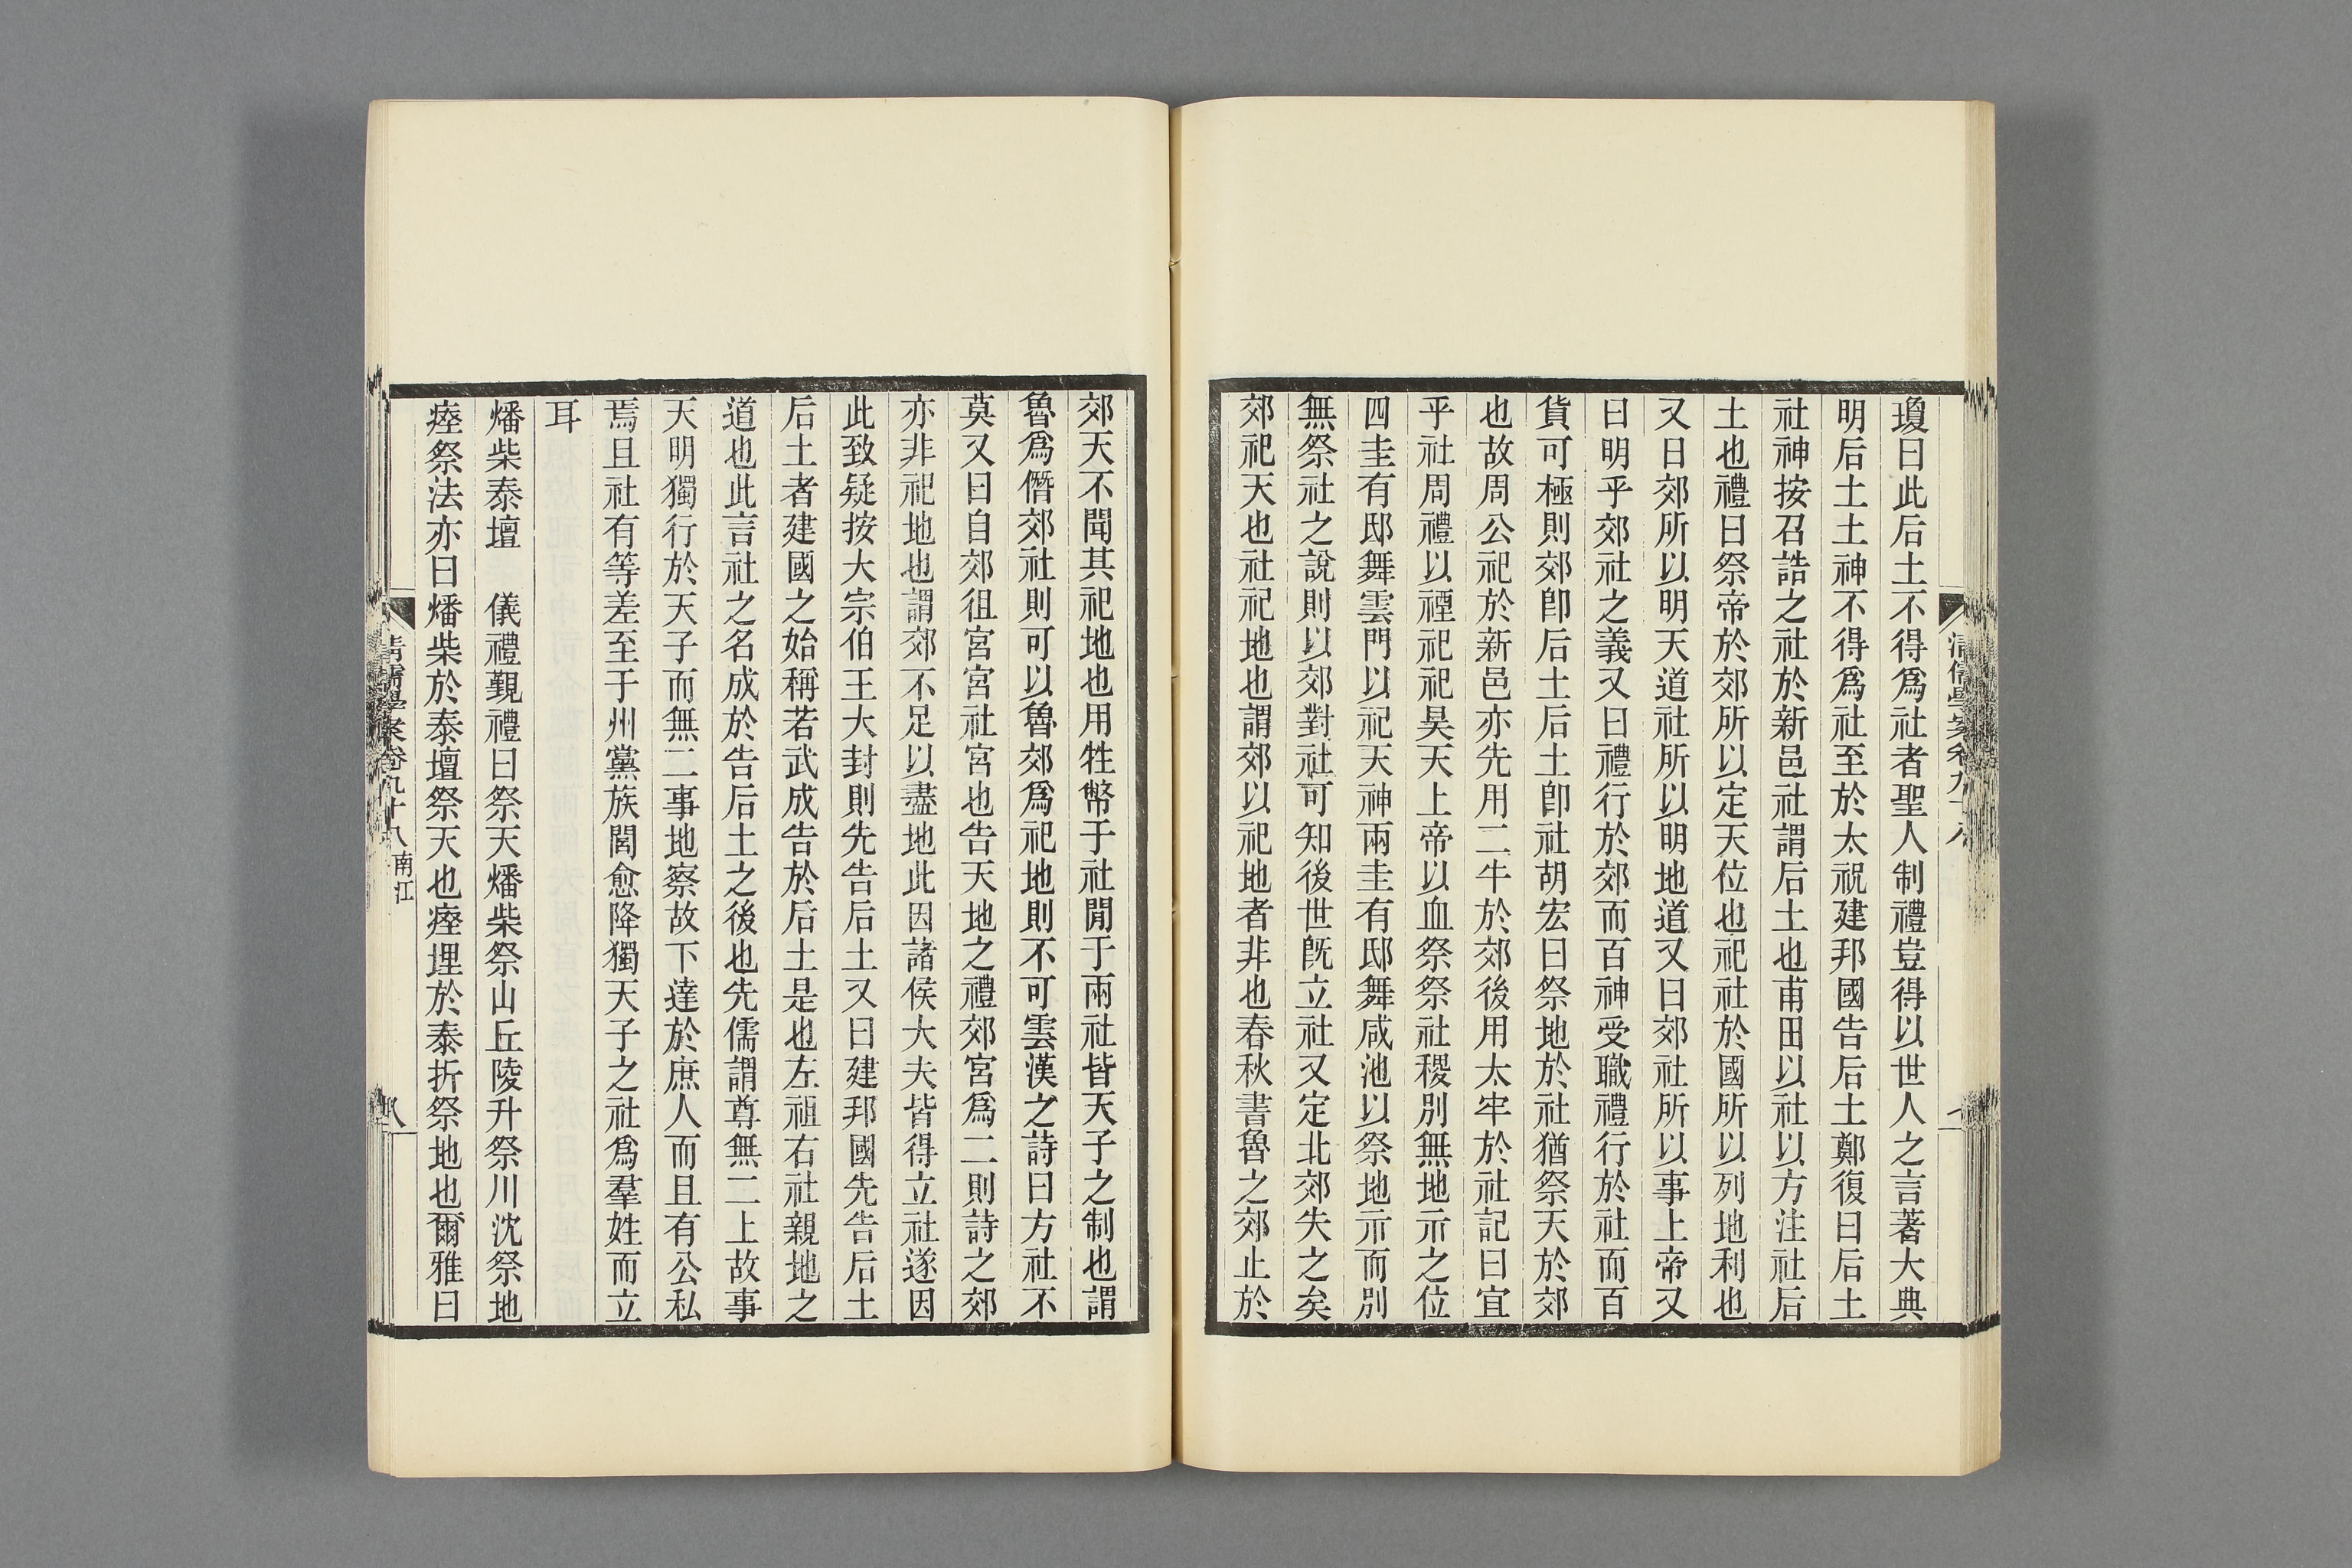 瓊曰此后土不得爲社者聖人制禮豈得以世人之言著大典
明后土土神不得爲社至於太祝建邦國告后土鄭復曰后土
社神按召誥之社於新邑社謂后土也甫田以社以方注社后
土也禮曰祭帝於郊所以定天位也祀社於國所以列地利也
又曰郊所以明天道社所以明地道又曰郊社所以事上帝又
曰明乎郊社之義又曰禮行於郊而百神受職禮行於社而百
貨可極則郊卽后土后土卽社胡宏曰祭地於社猶祭天於郊
也故周公祀於新邑亦先用二牛於郊後用太牢於社記曰宜
乎社周禮以禋祀祀昊天上帝以血祭祭社稷別無地示之位
四圭有邸舞雲門以祀天神兩圭有邸舞咸池以祭地示而別
無祭社之說則以郊對社可知後世旣立社又定北郊失之矣
郊祀天也社祀地也謂郊以祀地者非也春秋書魯之郊止於
郊天不聞其祀地也用牲幣于社閒于兩社皆天子之制也謂
魯爲僭郊社則可以魯郊爲祀地則不可雲漢之詩曰方社不
莫又曰自郊徂宮宮社宮也告天地之禮郊宮爲二則詩之郊
亦非祀地也謂郊不足以盡地此因諸侯大夫皆得立社遂因
此致疑按大宗伯王大封則先告后土又曰建邦國先告后土
后土者建國之始稱若武成告於后土是也左祖右社親地之
道也此言社之名成於告后土之後也先儒謂尊無二上故事
天明獨行於天子而無二事地察故下達於庶人而且有公私
焉且社有等差至于州黨族閭愈降獨天子之社爲羣姓而立
耳
燔柴泰壇　儀禮覲禮曰祭天燔柴祭山丘陵升祭川沈祭地
瘞祭法亦曰燔柴於泰壇祭天也瘞埋於泰折祭地也爾雅曰
清儒學案卷九十八 南江
八